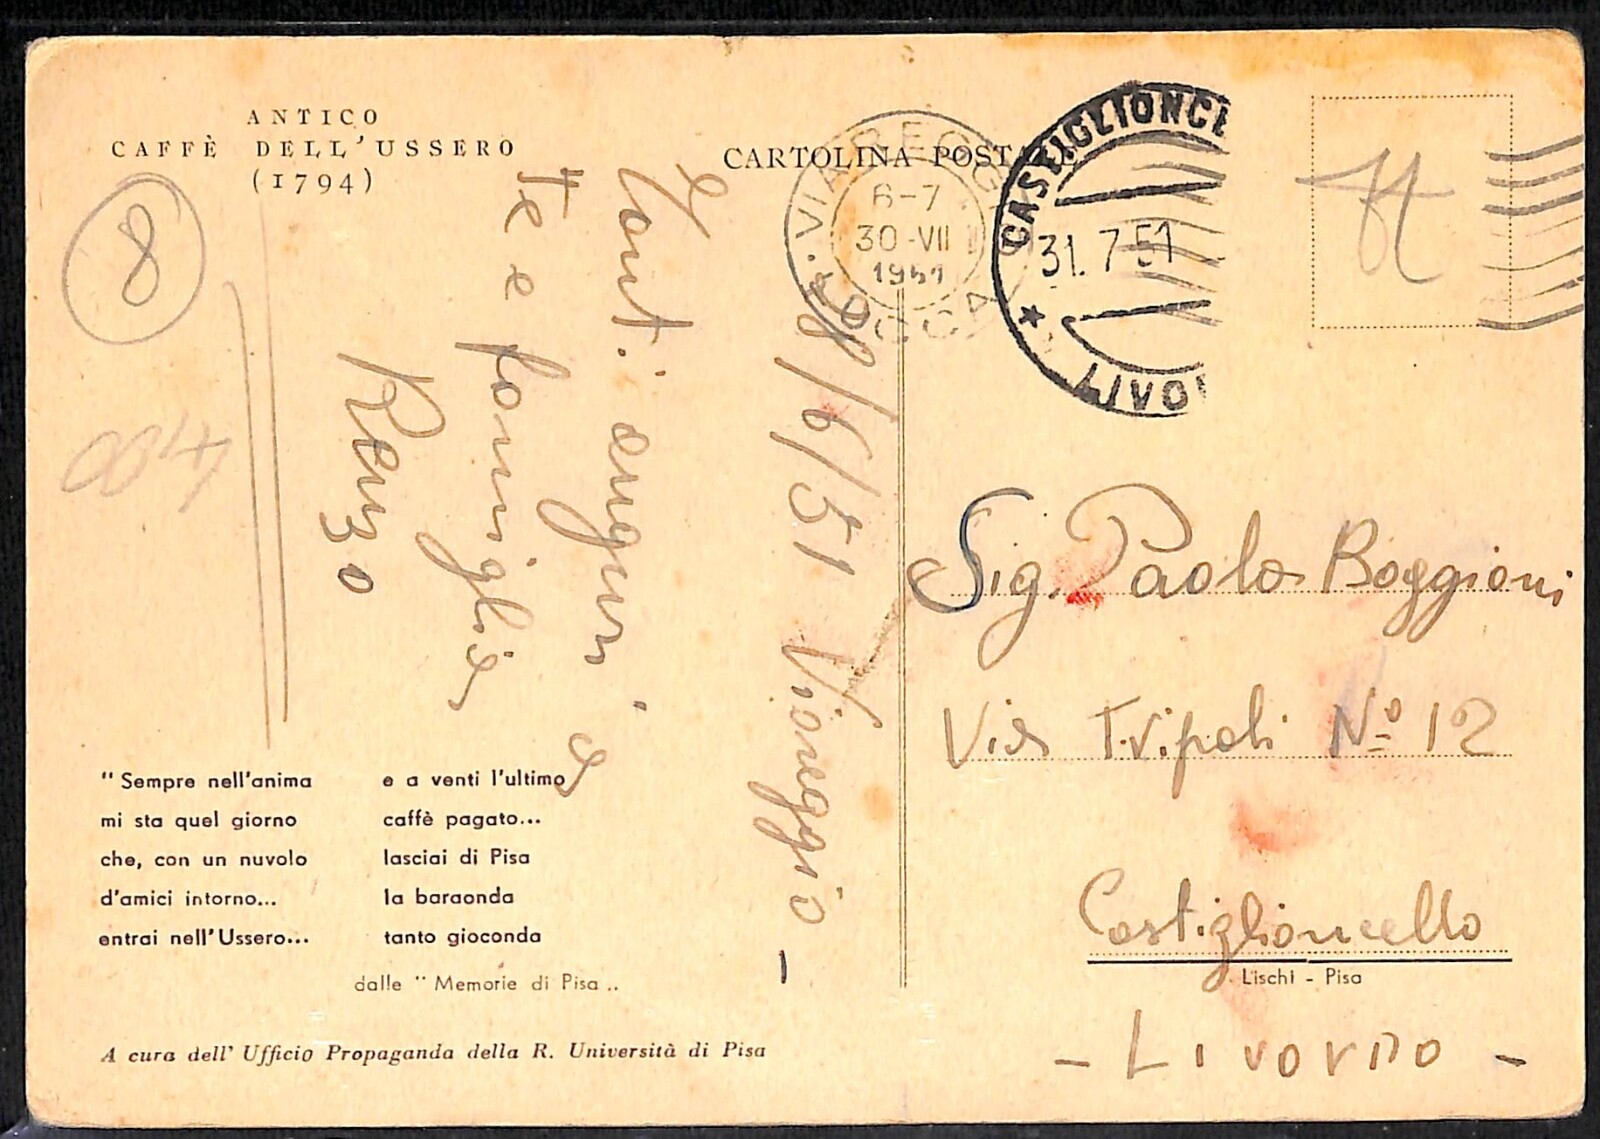 ANTICO
CAFFÈ DELL'USSERO
(1794)
8
400
Tanti auguri a
Te e famiglia
Renzo
28/6/51 Viareggio -
" Sempre nell'anima
mi sta quel giorno
che, con un nuvolo
d'amici intorno...
entrai nell'Ussero...
e a venti l'ultimo
caffè pagato...
lasciai di Pisa
la baraonda
tanto gioconda
dalle " Memorie di Pisa "
A cura dell' Ufficio Propaganda della R. Università di Pisa
CARTOLINA POSTALE
VIAREGGIO
6-7
30-VII
1951
LUCCA
CASTIGLIONCE
31.7 51
LIVO
Sig. Paolo Boggioni
Via Tripoli Nº 12
Castiglioncello
Lischi - Pisa
- Livorno -